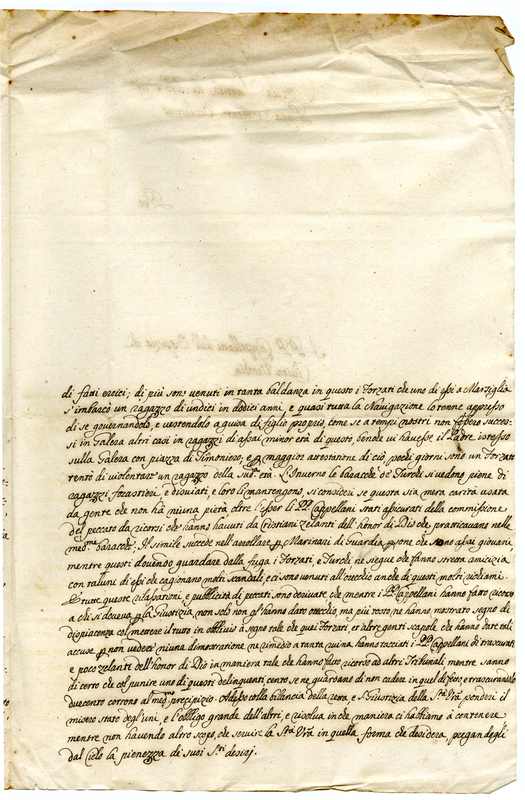 di farsi eretici; di più sono venuti in tanta baldanza in questo i Forzati che uno di essi a Marsiglia
s'imbarcò un ragazzo di undici in dodici anni, e quasi tutta la Navigazione lo tenne appresso
di se governandolo, e vestendolo a guisa di figlio proprio, come se a tempi nostri non fossero success-
si in Galera altri casi in ragazzi di assai minor età di questo, benche vi havesse il Padre istesso
sulla Galera con piazza di Timoniero, e p maggior attestatione di ciò pochi giorni sono un Forzato
tentò di violentare un ragazzo della sud.ta età. L'Inverno le baracche de Turchi si vedono piene di
ragazzi forastieri, e disviati, e loro li mantengono, si consideri se questa sia mera carità usata
da gente che non hà niuna pietà oltre l'esser li PP. Cappellani stati assicurati della commissione
del peccato da ricorsi che hanno havuti da Cristiani zelanti dell'honor di Dio che praticavano nelle
med.me baracche; Il simile succede nell'ascoltare p Marinari di guardia psone che sono assai giovani,
mentre questi dovendo guardare dalla fuga i Forzati, e Turchi ne siegue che fanno stretta amicizia
con taluni di essi che cagionano molti scandali e ci sono venuti all'orecchio anche di questi molti richiami.
Tutte queste rilassationi e pubblicità di peccati sono derivate che mentre i PP. Cappellani hanno fatto ricorso
a chi si doveva p la Giustizia, non solo non gl'hanno dato orecchio ma più tosto ne hanno mostrato segno di
dispiacenza col mettere il tutto in oblivio a segno tale che quei Forzati, et altre genti scapole che hanno date tali
accuse p non vedere niuna dimostratione ne rimedio a tanta ruina hanno tacciati i PP. Cappellani di trascurati
e poco zelanti dell'honor di Dio in maniera tale che hanno fatto ricorso ad altri Tribunali mentre sanno
di certo che col punire uno di questi delinquenti cento se ne guardano di non cadere in quel difetto e trascurandolo
duecento corrono al med.mo precipizio. Adesso colla bilancia della vera, e S. Giustizia della S.tà Vrã ponderi il
misero stato degl'uni, e l'obbligo grande dell'altri, e risolva in che maniera ci habbiamo a contenere
mentre non havendo altro scopo, che servire la S.tà Vrã in quella forma che desidera, pregandogli
dal Cielo la pienezza de suoi S.ti desirj.